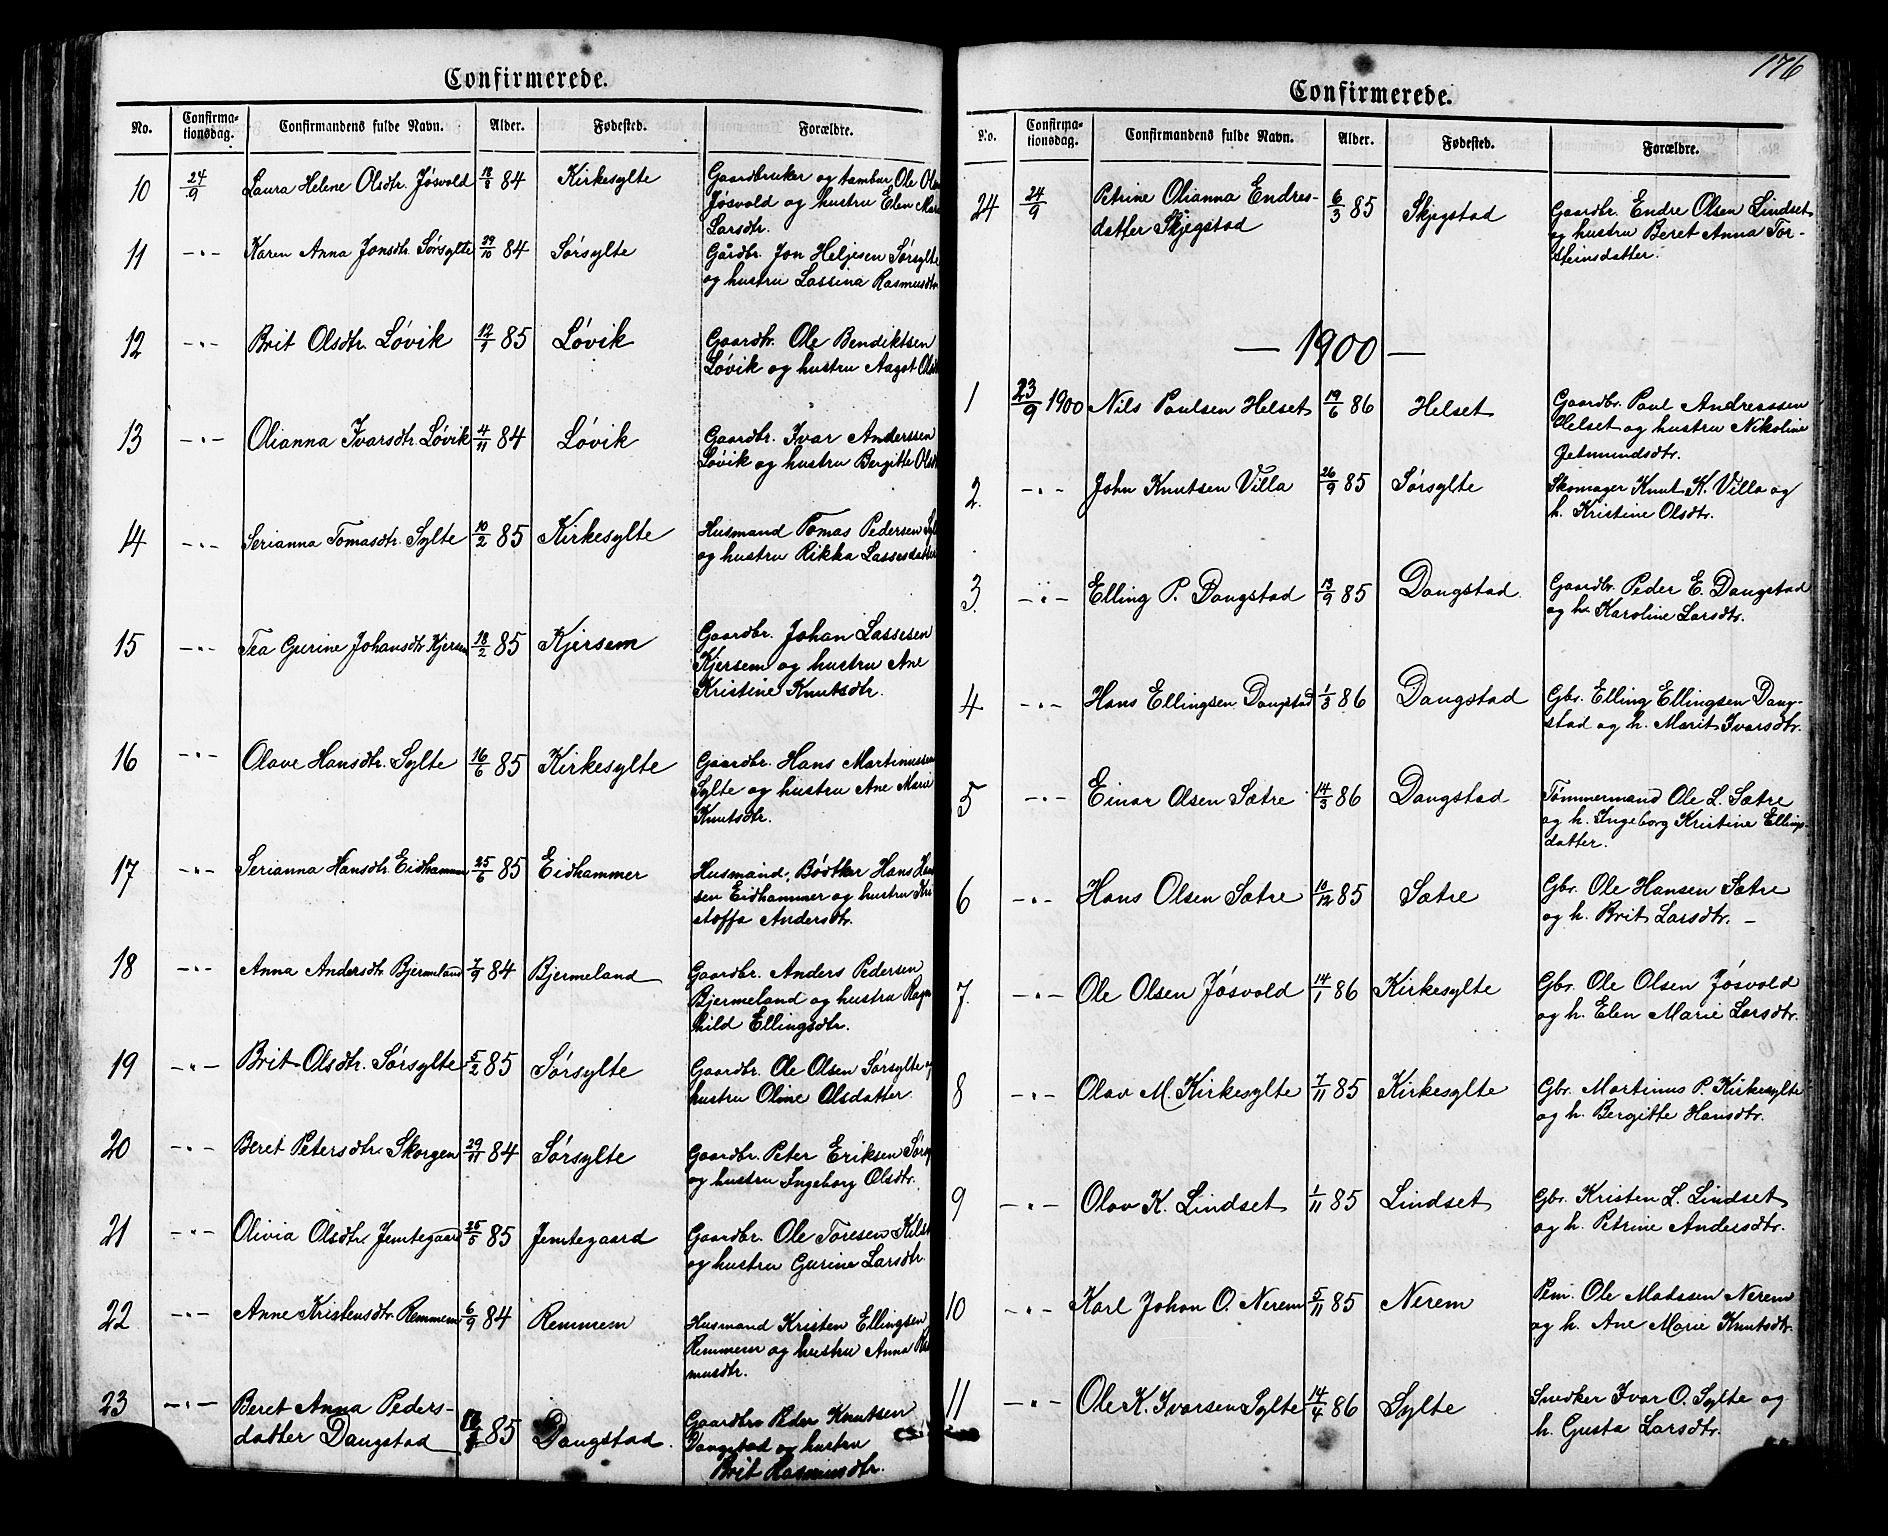 Confirmerede.
No. Confirma-tionsdag. Confirmandens fulde Navn. Alder. Fødested. Forældre.
10 24/9 Laura Helene Olsdtr. Jøsvold 84 Kirkesylte Gaardbruker og tambur Ole
Jøsvold og hustru Elen
Larsdtr.
11 -"- Karen Anna Jonsdtr. Sørsylte 29/10 84 Sørsylte Gårdbr. Jon Heljesen Sørsylte
og hustru Lassina Rasmusdtr.
12 -"- Brit Olsdtr. Løvik 85 Løvik Gaardbr. Ole Bendiktsen
Løvik og hustru Aagot
13 -"- Olianna Ivarsdtr. Løvik 4/11 84 Løvik Gaardbr. Ivar Anderssen
Løvik og hustru Bergitte
14 -"- Serianna Tomasdtr. Sylte 10/2 85 Kirkesylte Husmand Tomas Pedersen
og hustru Rikka Lassesdatter
15 -"- Tea Gurine Johansdtr Kjersem 18/2 85 Kjersem Gaardbr. Johan Lassesen
Kjersem og hustru Ane
Kristine Knutsdtr.
16 -"- Olave Hansdtr. Sylte 16/6 85 Kirkesylte Gaardbr. Hans Martinussen
Sylte og hustru Ane Marie
Knutsdtr.
17 -"- Serianna Hansdtr. Eidhammer 25/6 85 Eidhammer Husmand, Bødker Hans
sen Eidhammer og hustru Kri
stoffa Andersdtr.
18 -"- Anna Andersdtr Bjermeland 7/9 84 Bjermeland Gaardbr. Anders Pedersen
Bjermeland og hustru Ragn
hild Ellingsdtr.
19 -"- Brit Olsdtr. Sørsylte 5/2 85 Sørsylte Gaardbr. Ole Olsen Sørsylte og
hustru Oline Olsdatter
20 -"- Beret Petersdtr. Skorgen 29/11 84 Sørsylte Gaardbr. Peter Eriksen
og hustru Ingeborg Olsdtr.
21 -"- Olivia Olsdtr. Jemtegaard 25/5 85 Jemtegaard Gaardbr. Ole Toresen
og hustru Gurine Larsdtr.
22 -"- Anne Kristensdtr. Remmem 6/9 84 Remmem Husmand Kristen Ellingsen
Remmem og hustru Anna
musdtr.
23 -"- Beret Anna Peders-
datter Dangstad 85 Dangstad. Gaardbr Peder Knutsen
Dangstad og hustru
Brit Rasmusdtr.
176
Confirmerede.
No. Confirma-tionsdag. Confirmandens fulde Navn. Alder. Fødested. Forældre.
24 24/9 Petrine Olianna Endres-
datter Skjegstad 6/3 85 Skjegstad Gaardbr. Endre Olsen Lindset
og hustru Beret Anna Tor-
steinsdatter.
- 1900 -
1 23/9 1900 Nils Paulsen Helset 19/6 86 Helset Gaardbr. Paul Andreassen
Helset og hustru Nikoline
Jetmundsdtr.
2. -"- John Knutsen Villa 26/9 85 Sørsylte Skomager Knut K. Villa og
h. Kristine Olsdtr.
3. -"- Elling P. Dangstad 13/9 85 Dangstad. Gaardbr. Peder E. Dangstad
og h. Karoline Larsdtr.
4 -"- Hans Ellingsen Dangstad 1/3 86 Dangstad Gbr. Elling Ellingsen Dang-
stad og h. Marit Ivarsdtr.
5 -"- Einar Olsen Sætre 14/3 86 Dangstad Tømmermand Ole L. Sætre
og h. Ingeborg Kristine Ellings-
datter.
6 -"- Hans Olsen Sætre 10/12 85 Sætre Gbr. Ole Hansen Sætre
og h. Brit Larsdtr. -
7. -"- Ole Olsen Jøsvold 14/1 86 Kirkesylte Gbr. Ole Olsen Jøsvold
og h. Elen Marie Larsdtr.
8 -"- Olav M. Kirkesylte 7/11 85 Kirkesylte Gbr. Martinus P. Kirkesylte
og h. Bergitte Hansdtr.
9 -"- Olav K. Lindset 1/11 85 Lindset Gbr. Kristen L. Lindset
og h. Petrine Andersdtr.
10 -"- Karl Johan O. Nerem 5/11 85 Nerem Ole Madssen Nerem
og h. Ane Marie Knutsdtr.
11 -"- Ole K. Ivarsen Sylte 14/4 86 Sylte Snedker Ivar O. Sylte og
h. Gusta Larsdtr.